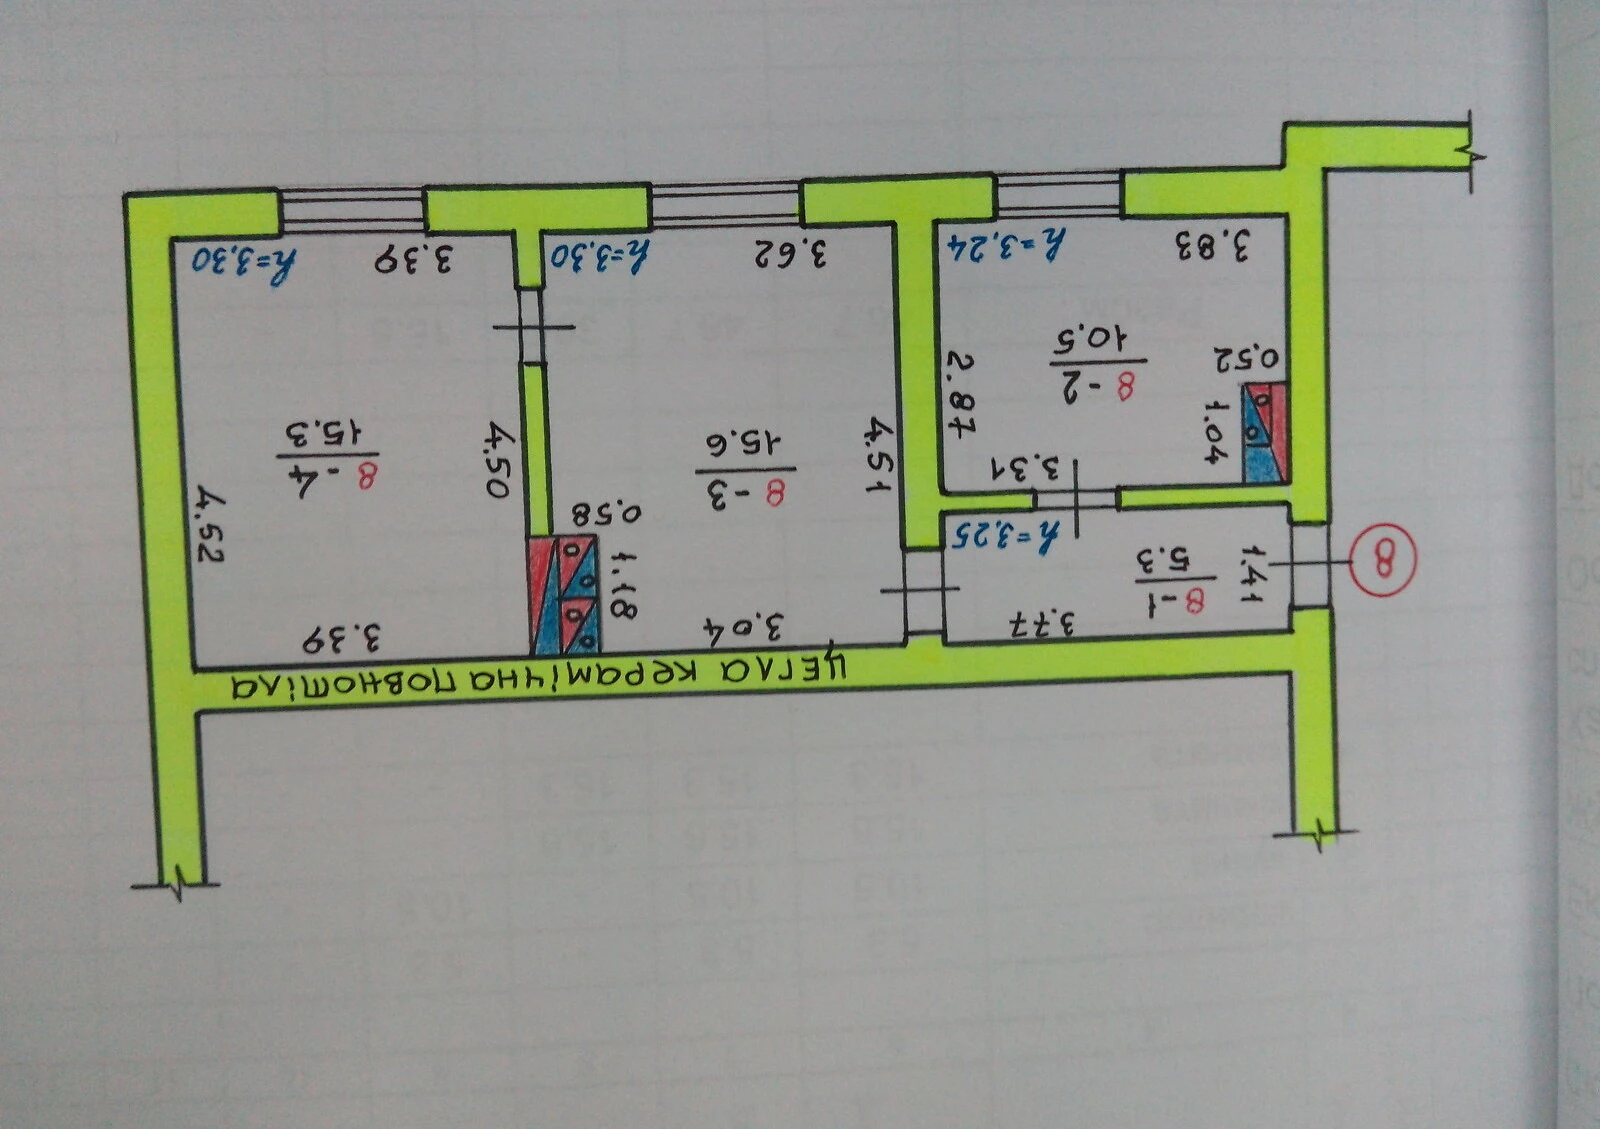 ЦЕГЛА КЕРАМІЧНА ПОВНОТІЛА
8
1.41
3.77
8-1
5.3
h=3.25
3.31
1.04
0.52
8-2
10.5
2.87
3.83
h=3.24
3.04
1.18
0.58
4.51
8-3
15.6
3.62
h=3.30
3.39
4.50
8-4
15.3
4.52
3.39
h=3.30